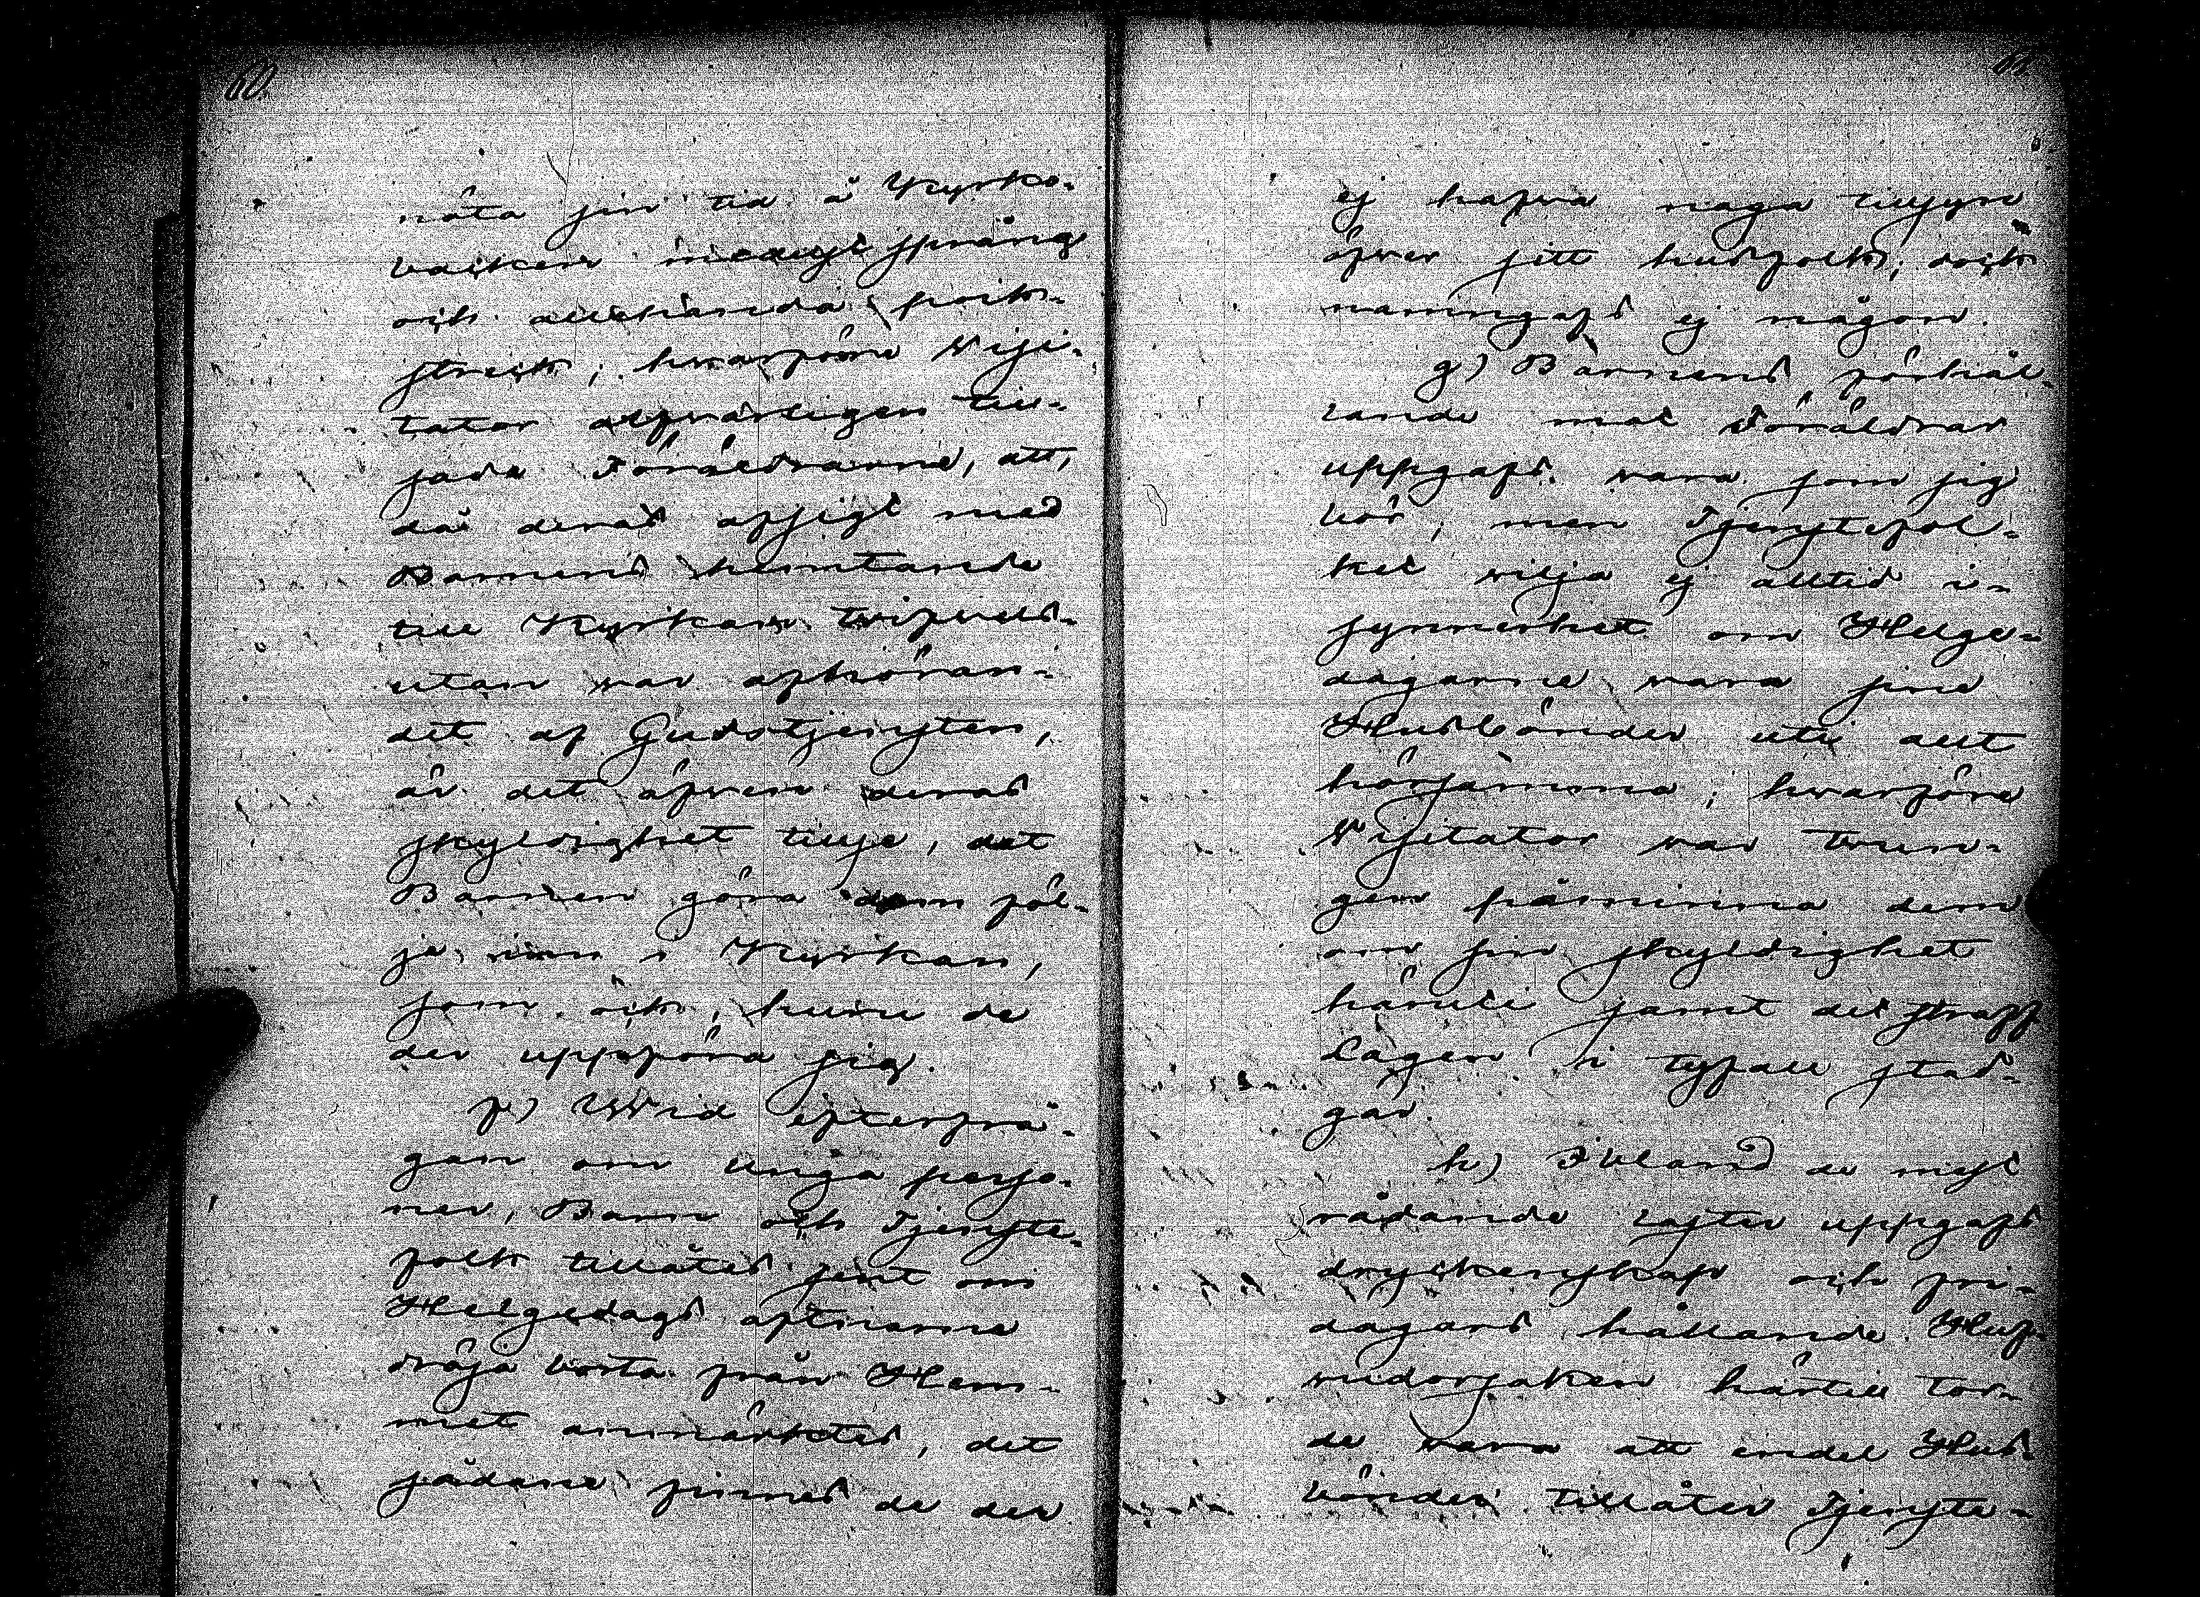 60.
nöta sin tid å Kyrko-
backen medelst språng
och allehanda pojk-
streck; hwarföre Visi-
tator alfvarligen till-
sade Föräldrarne, att,
då deras afsigt med
Barnens hemtande
till Kyrkan tvifvels-
utan var afhöran-
det af Gudstjensten,
är det äfven deras
skyldighet tillse, det
Barnen göra dem föl-
je inn i Kyrkan,
som ock, huru de
der uppföra sig.
f) Wid efterfrå-
gan om unga perso-
ner, Barn och Tjenste-
folk tillåtes sent om
Helgedags aftnarne
dröja borta från Hem-
met anmärktes, det
sådane finnes de der
61.
ej hafva noga tillsyn
öfver sitt husfolk; dock
namngafs ej någon.
g) Barnens förhål-
lande mot Föräldrar
uppgafs vara som sig
bör; men Tjenstefol-
ket vilja ej alltid i-
synnerhet om Helge-
dagarne vara sine
Husbönder uti allt
hörsamma; hvarföre
Visitator var tvun-
gen påminna dem
om sin skyldighet
häruti samt det straff
Lagen i ty fall stad-
gar.
h) Ibland de mest
rådande laster uppgafs
dryckenskap och fri-
dagars hållande. Huf-
vudorsaken härtill tor-
de vara att endel Hus
bönder tillåter Tjenste-